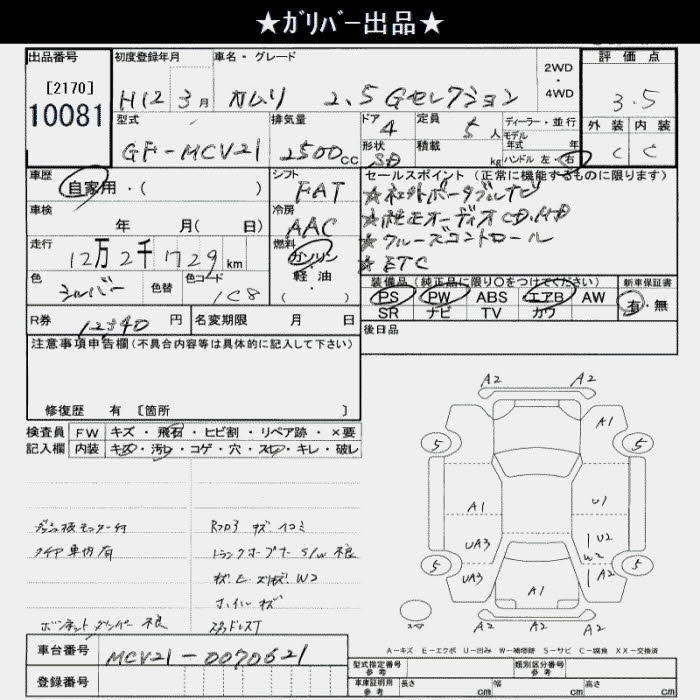 ★ｶﾞﾘﾊﾞｰ出品★
出品番号
[2170]
10081
初度登録年月
H12 3月
車名・グレード
カムリ 2.5Gセレクション
2WD
・
4WD
評価点
3.5
外装 内装
C C
型式
GF-MCV21
排気量
2500cc
ドア
4
形状
SD
定員
5人
積載
kg
ディーラー・並行
モデル
年式 年
ハンドル 左・右
車歴
自家用・( )
シフト
FAT
セールスポイント(正常に機能するものに限ります)
★社外ポータブルナビ
★純正オーディオCD,MD
★クルーズコントロール
★ETC
車検
年 月( 日)
冷房
AAC
走行
12万2千729km
燃料
ガソリン
・
軽油
( )
色
シルバー
色替
色コード
1C8
装備品(純正品に限り○をつけてください)
PS PW ABS エアB AW
SR ナビ TV カワ
新車保証書
有・無
R券
12340円
名変期限 月 日
後日品
注意事項申告欄(不具合内容等は具体的に記入して下さい)
修復歴 有 [箇所 ]
検査員
記入欄
FW キズ・飛石・ヒビ割・リペア跡・×要
内装 キズ・汚レ・コゲ・穴・スレ・キレ・破レ
ダッシュ板モニター付
タイヤ車内有
ボンネットダンパー不良
Rフロアキズイコミ
トランクオープナーS/W不良
ホイルキズ
スタッドレスT
A2 A2
A1
5 5
A1 U1
UA3 U2
W2
5 5
UA3 A2
A1
A2 A2 A2
スペア
A-キズ E-エクボ U-凹み W-補修跡 S-サビ C-腐食 XX-交換済
車台番号
MCV21-0070621
登録番号
型式指定番号
参考
類別区分番号
参考
車庫証明用
参考
長さ cm 幅 cm 高さ cm